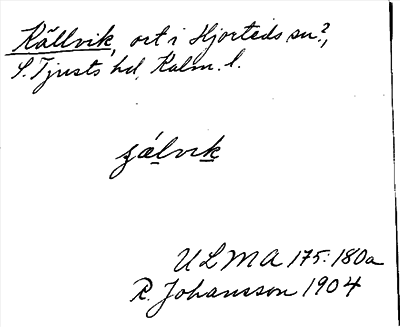 Källvik, ort i Hjorteds sn?,
S. Tjusts hd, Kalm. l.
ȿálvik
ULMA 175:180a
R. Johansson 1904